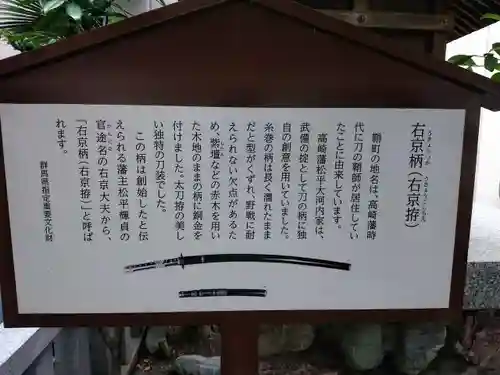 右京柄(右京拵)
うきょうづか
うきょうごしらえ
鞘町の地名は、高崎藩時
代に刀の鞘師が居住してい
たことに由来しています。
高崎藩松平大河内家は、
武備の掟として刀の柄に独
自の創意を用いていました。
糸巻の柄は長く濡れたまま
だと型がくずれ、野戦に耐
えられない欠点があるた
め、紫壇などの赤木を用い
た木地のままの柄に銅金を
付けました。太刀拵の美し
い独特の刀装でした。
この柄は創始したと伝
えられる藩主松平輝貞の
官途名の右京大夫から、
「右京柄(右京拵)」と呼ば
れます。
群馬県指定重要文化財